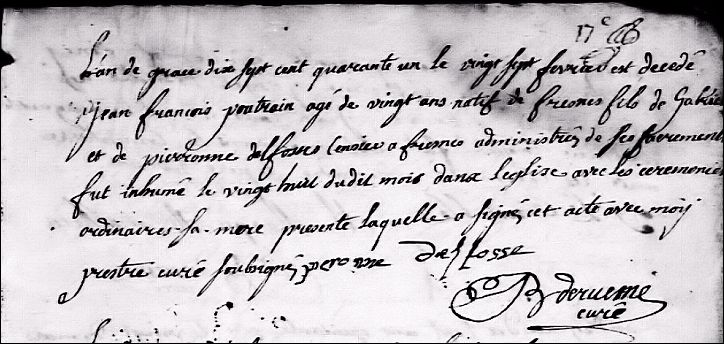 17e
L'an de grace dix sept cent quarante un le vingt sept fevrier est decedé
Jean francois poutrain agé de vingt ans natif de fresnes fils de Gabriel
et de pierronne delfosse administrés de ses sacremens
fut inhumé le vingt huit dudit mois dans leglise avec les ceremonies
ordinaires sa mere presente laquelle a signé cet acte avec moy
prestre curé soubsigné peronne Delfosse
curé